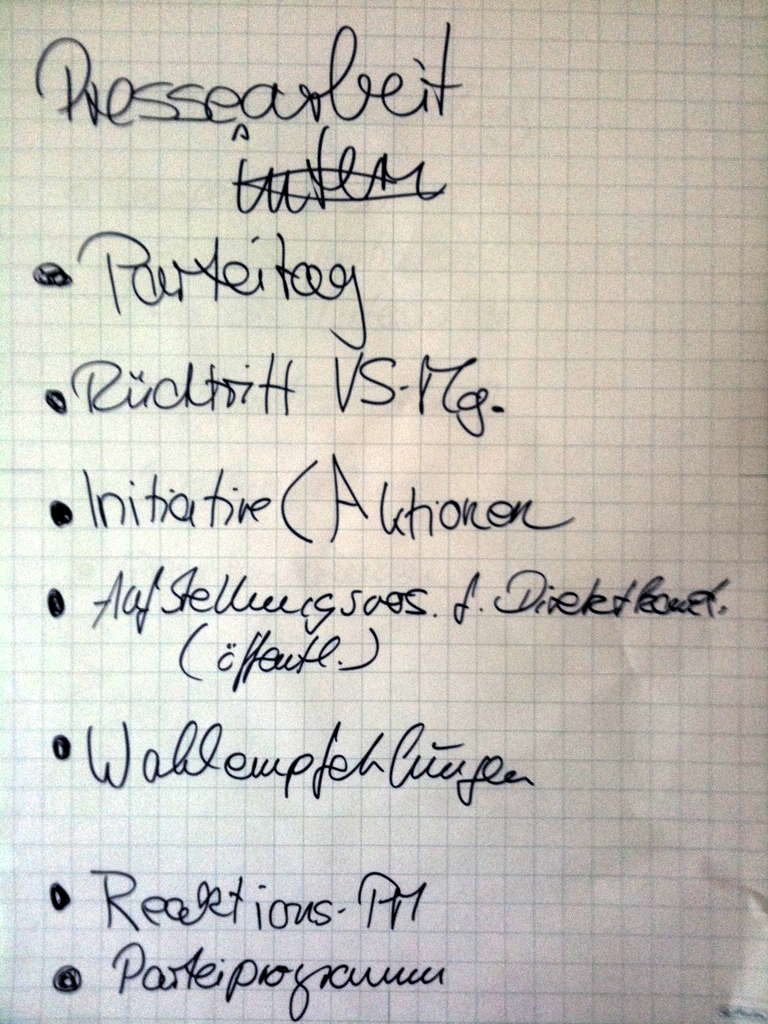 Pressearbeit
intern
• Parteitag
• Rücktritt VS-Mg.
• Initiative (Aktionen
• Aufstellungsves. f. Direktkand.
(öffentl.)
• Wahlempfehlungen
• Reaktions-PM
• Parteiprogramm